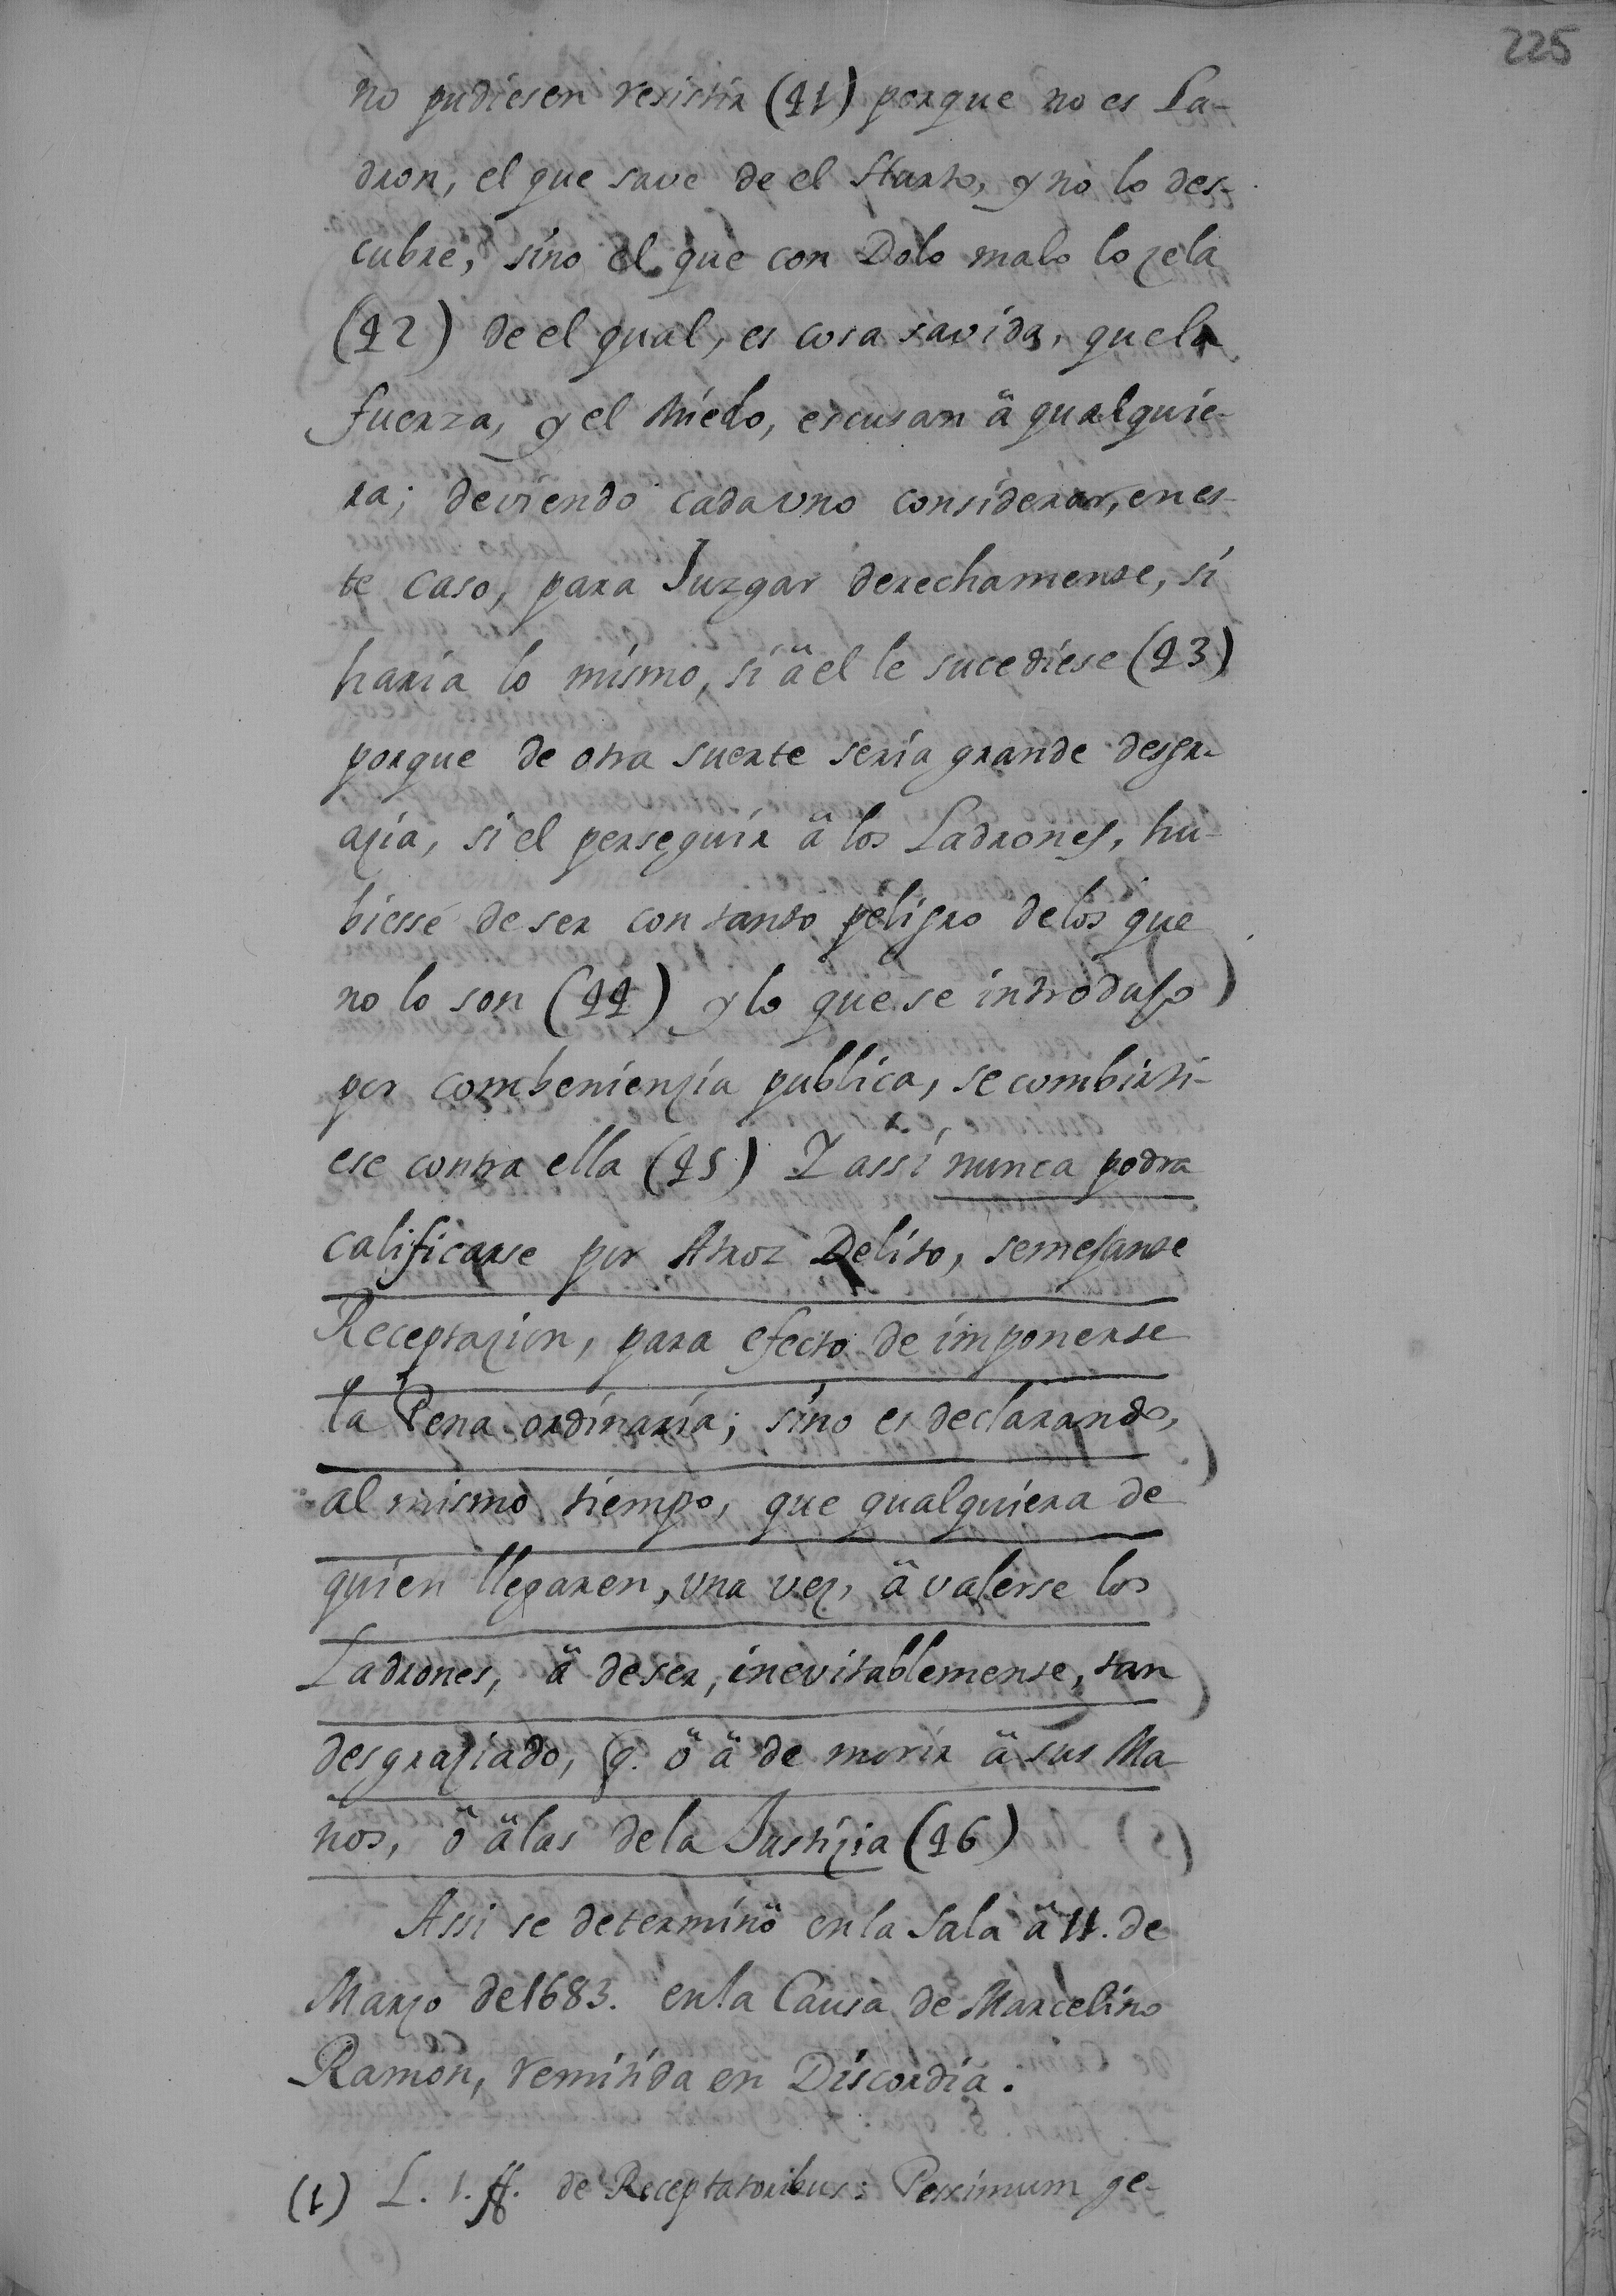 225
no pudiesen resistir (41) porque no es La-
dron, el que save de el Hurto, y no lo des-
cubre, sino el que con Dolo malo lo zela
(42) de el qual, es cosa savida, que la
fuerza, y el Miedo, escusan â qualquie-
ra; deviendo cada uno considerar, en es-
te caso, para Juzgar derechamente, si
haria lo mismo, si â el le sucediese (43)
porque de otra suerte seria grande desgr-
azia, si el perseguir â los Ladrones, hu-
biesse de ser con tanto peligro de los que
no lo son (44) y lo que se introdujo
por combenienzia publica, se combirti-
ese contra ella (45) Y assi nunca podra
calificarse por Atroz Delito, semejante
Receptazion, para efecto de imponerse
la Pena ordinaria; sino es declarando,
al mismo tiempo, que qualquiera de
quien llegaren, una vez, â valerse los
Ladrones, â de ser, inevitablemente, tan
desgraziado, q. ô â de morir â sus Ma-
nos, ô â las de la Justizia (46)
Assi se determinô en la Sala â 11. de
Marzo de 1683. en la Causa de Marcelino
Ramon, remitida en Discordia.
(1) L. 1. ff. de Receptatoribus: Pessimum ge-